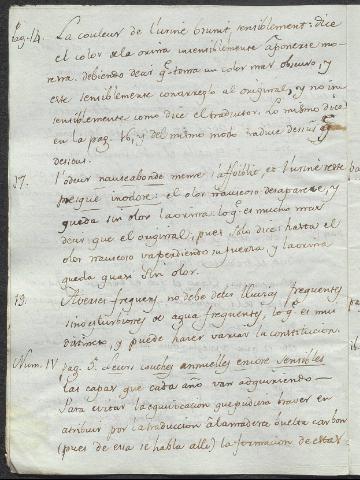 Pag. 14. La couleur de l'urine brunit sensiblement: dice
el color de la orina insensiblemente se pone mo-
rena. debiendo decir q.e toma un color mas obscuro, y
este sensiblemente con arreglo al original, y no in-
sensiblemente como dice el traductor. Lo mismo dice
en la pag. 16, y del mismo modo traduce dessus q.e
dessous.
17. l'odeur nauseabonde meme s'affoiblie, et l'urine reste
presque inodore: el olor nauseoso desaparese, y
queda sin olor la orina: lo q.e es mucho mas
decir que el original, pues solo dice hasta el
olor nauseoso va perdiendo su fuerza y la orina
queda quasi sin olor.
19. Averses frequens no debe decir lluvias frequentes
sino esturbiones de agua frequentes, lo q.e es mui
distincto, y puede hacer variar la constitucion.
Num. IV pag. 5. leurs couches annuelles encore sensibles
las capas que cada año van adquiriendo —
Para evitar la equivocacion que pudiera haver en
atribuir por la traduccion à la madera ò veta carbon
(pues de esa se habla alli) la formacion de estas